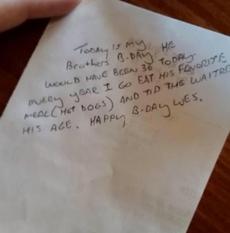 TODAY IS MY
BROTHERS B-DAY. HE
WOULD HAVE BEEN 36 TODAY.
EVERY YEAR I GO EAT HIS FAVORITE
MEAL (HOT DOGS) AND TIP THE WAITRE
HIS AGE. HAPPY B-DAY WES.